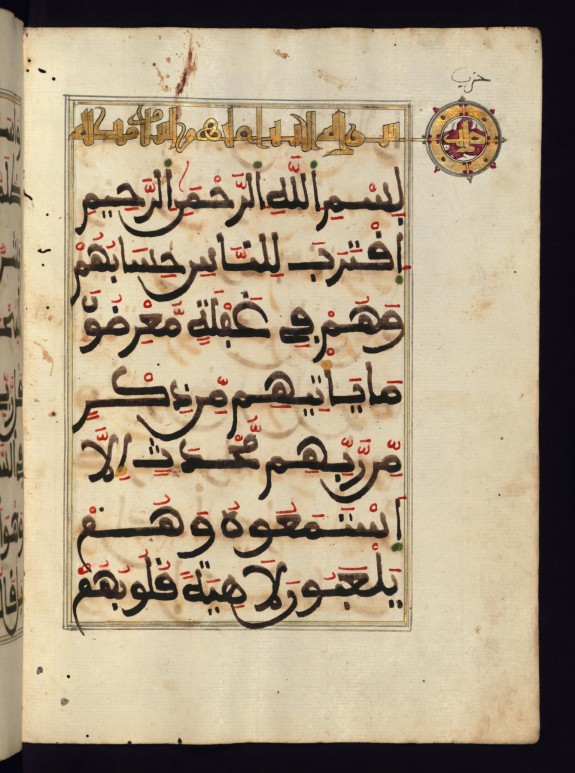 حزب
سورة الانبياء
بِسْمِ اللَّهِ الرَّحْمَٰنِ الرَّحِيمِ
اقْتَرَبَ لِلنَّاسِ حِسَابُهُمْ
وَهُمْ فِي غَفْلَةٍ مُّعْرِضُونَ
مَا يَأْتِيهِم مِّن ذِكْرٍ
مِّن رَّبِّهِم مُّحْدَثٍ إِلَّا
اسْتَمَعُوهُ وَهُمْ
يَلْعَبُونَ لَاهِيَةً قُلُوبُهُمْ